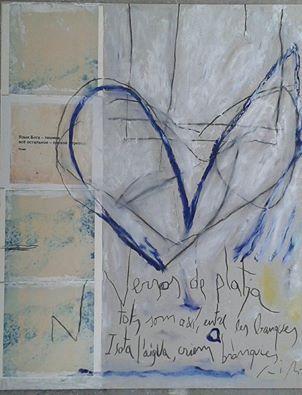 Язык Бога – тишина,
всё остальное – плохой перевод.
Versos de platja
tots som així, entre les branques
I sota l'aigua, criem brànques